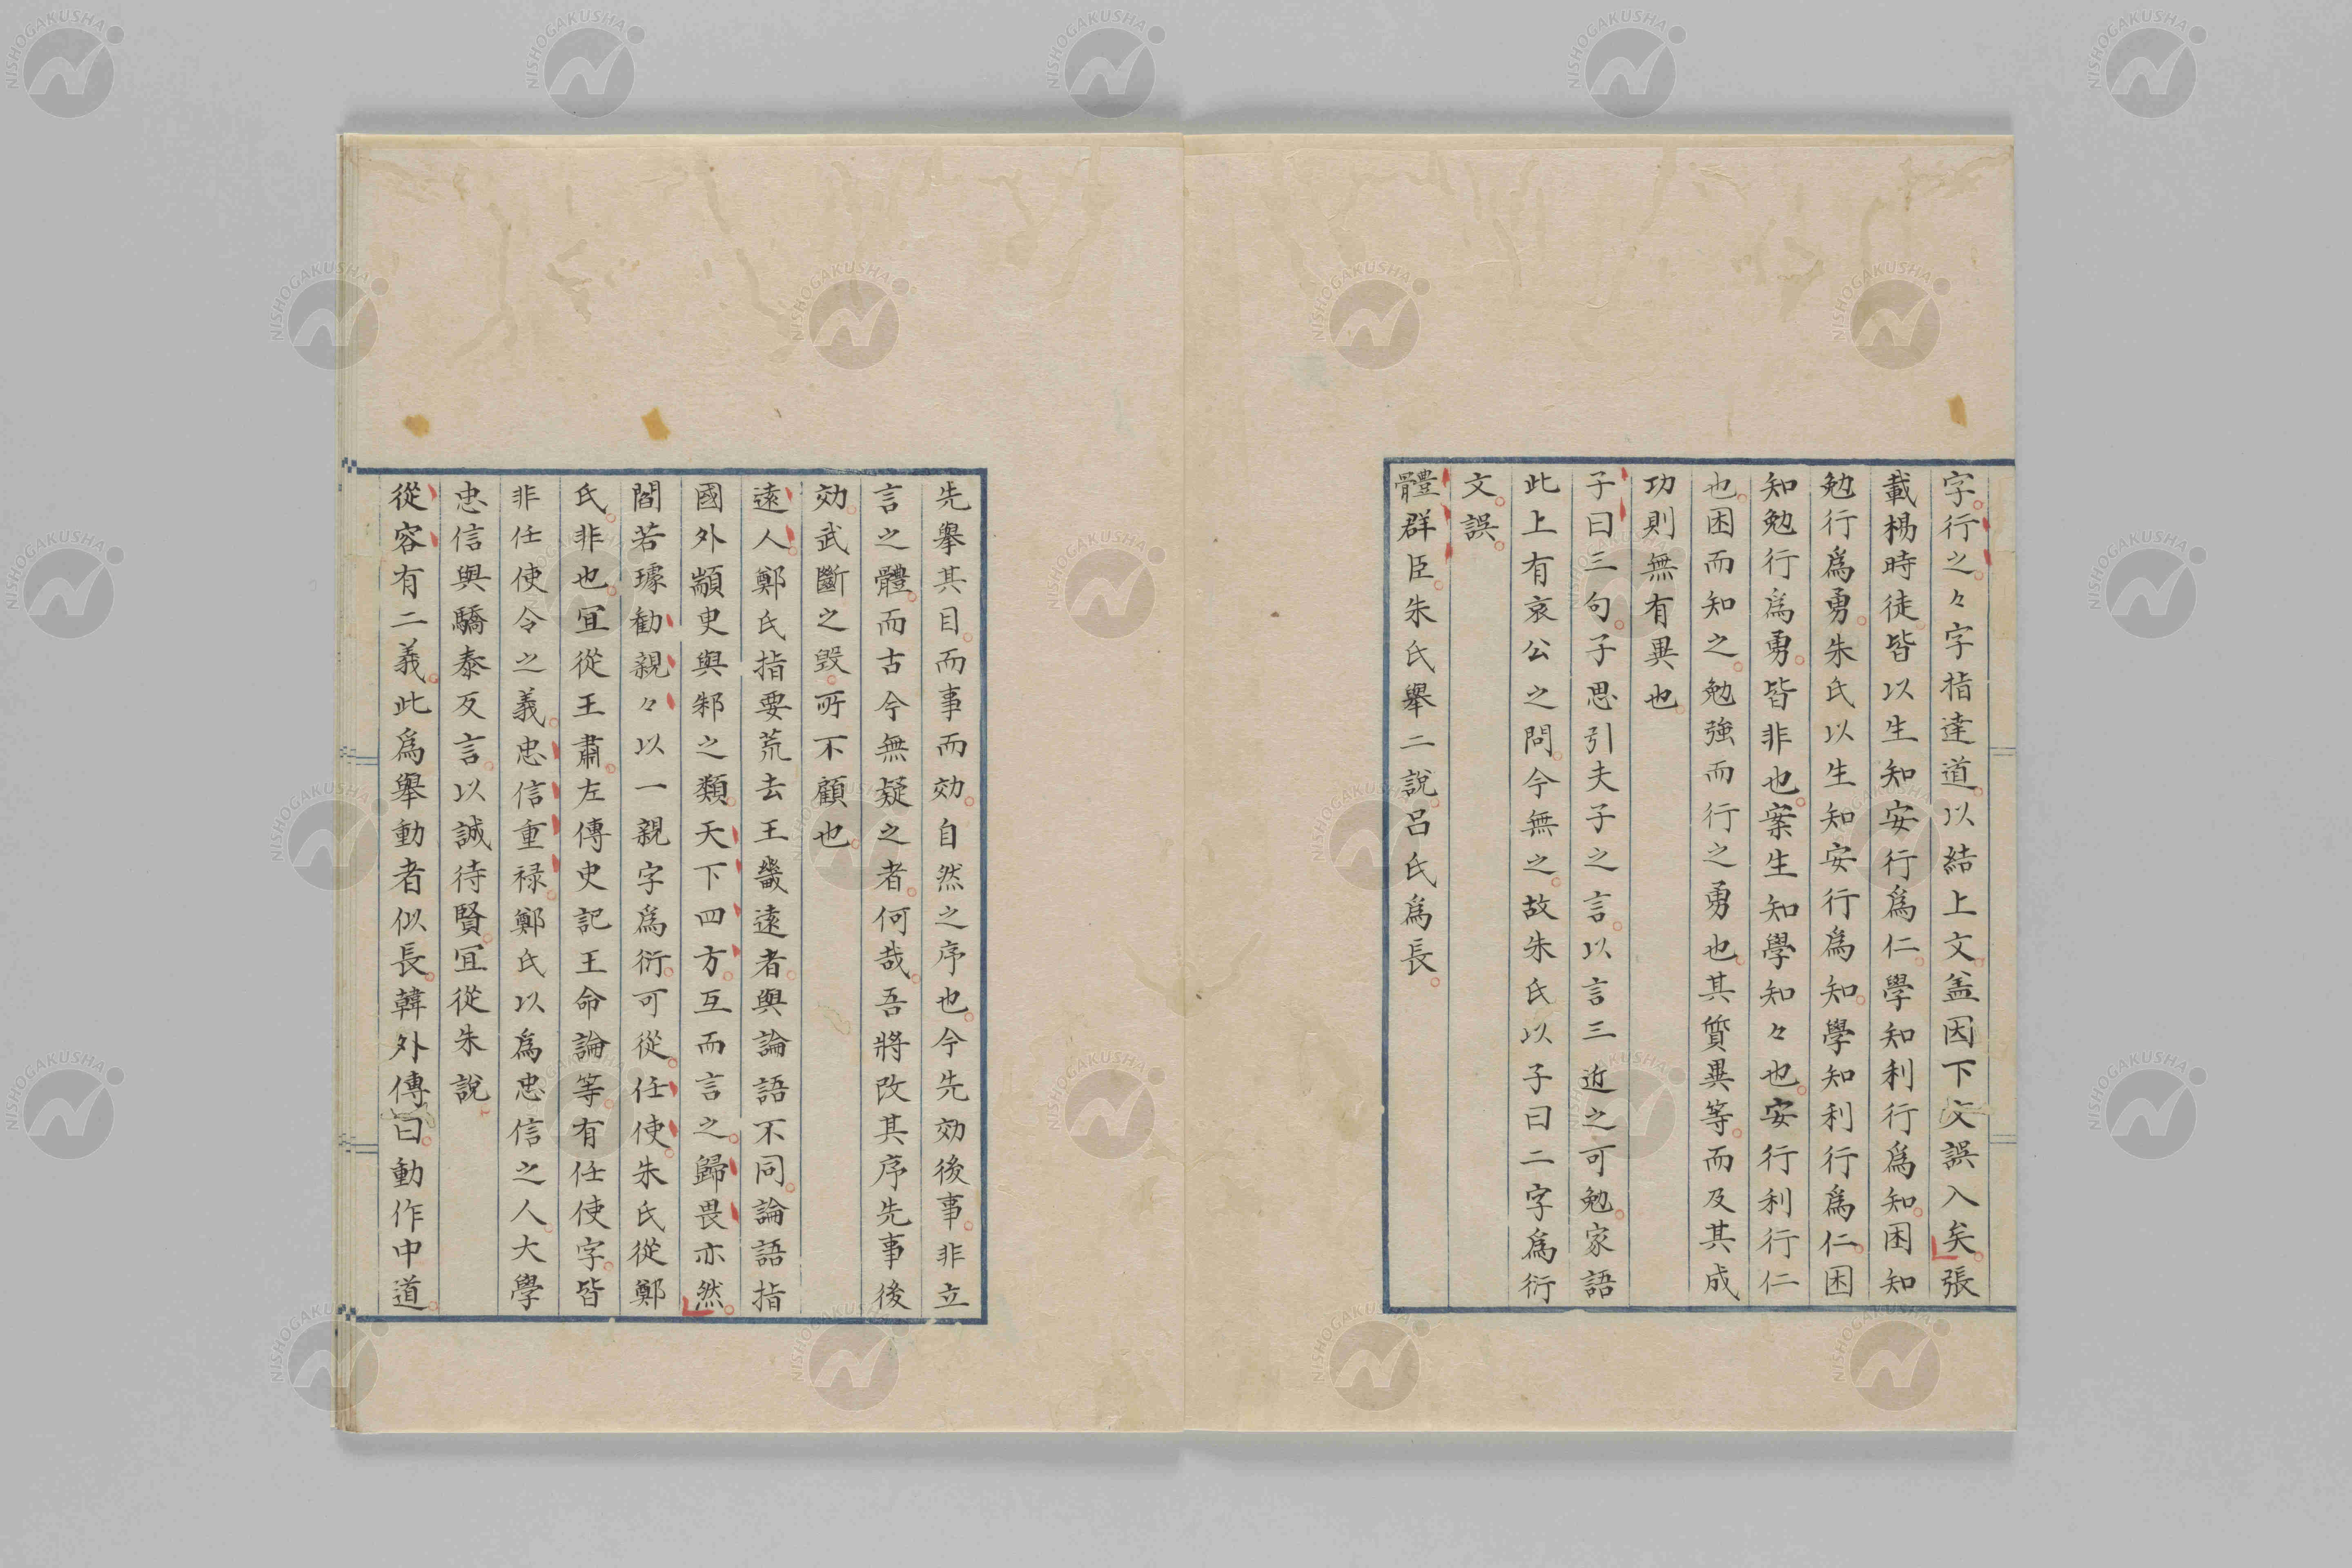 字行之々字指達道以結上文盖因下文誤入矣張
載楊時徒皆以生知安行爲仁學知利行爲知困知
勉行爲勇朱氏以生知安行爲知學知利行爲仁困
知勉行爲勇皆非也案生知學知々也安行利行仁
也困而知之勉強而行之勇也其質異等而及其成
功則無有異也
子曰三句子思引夫子之言以言三近之可勉家語
此上有哀公之問今無之故朱氏以子曰二字爲衍
文誤
體群臣朱氏舉二說呂氏爲長
先舉其目而事而効自然之序也今先効後事非立
言之體而古今無疑之者何哉吾將改其序先事後
効武斷之毀所不顧也
遠人鄭氏指要荒去王畿遠者與論語不同論語指
國外顓臾與邾之類天下四方互而言之歸畏亦然
閻若璩勸親々以一親字爲衍可從任使朱氏從鄭
氏非也宜從王肅左傳史記王命論等有任使字皆
非任使令之義忠信重禄鄭氏以爲忠信之人大學
忠信與驕泰反言以誠待賢宜從朱說
從容有二義此爲舉動者似長韓外傳曰動作中道
NISHOGAKUSHA